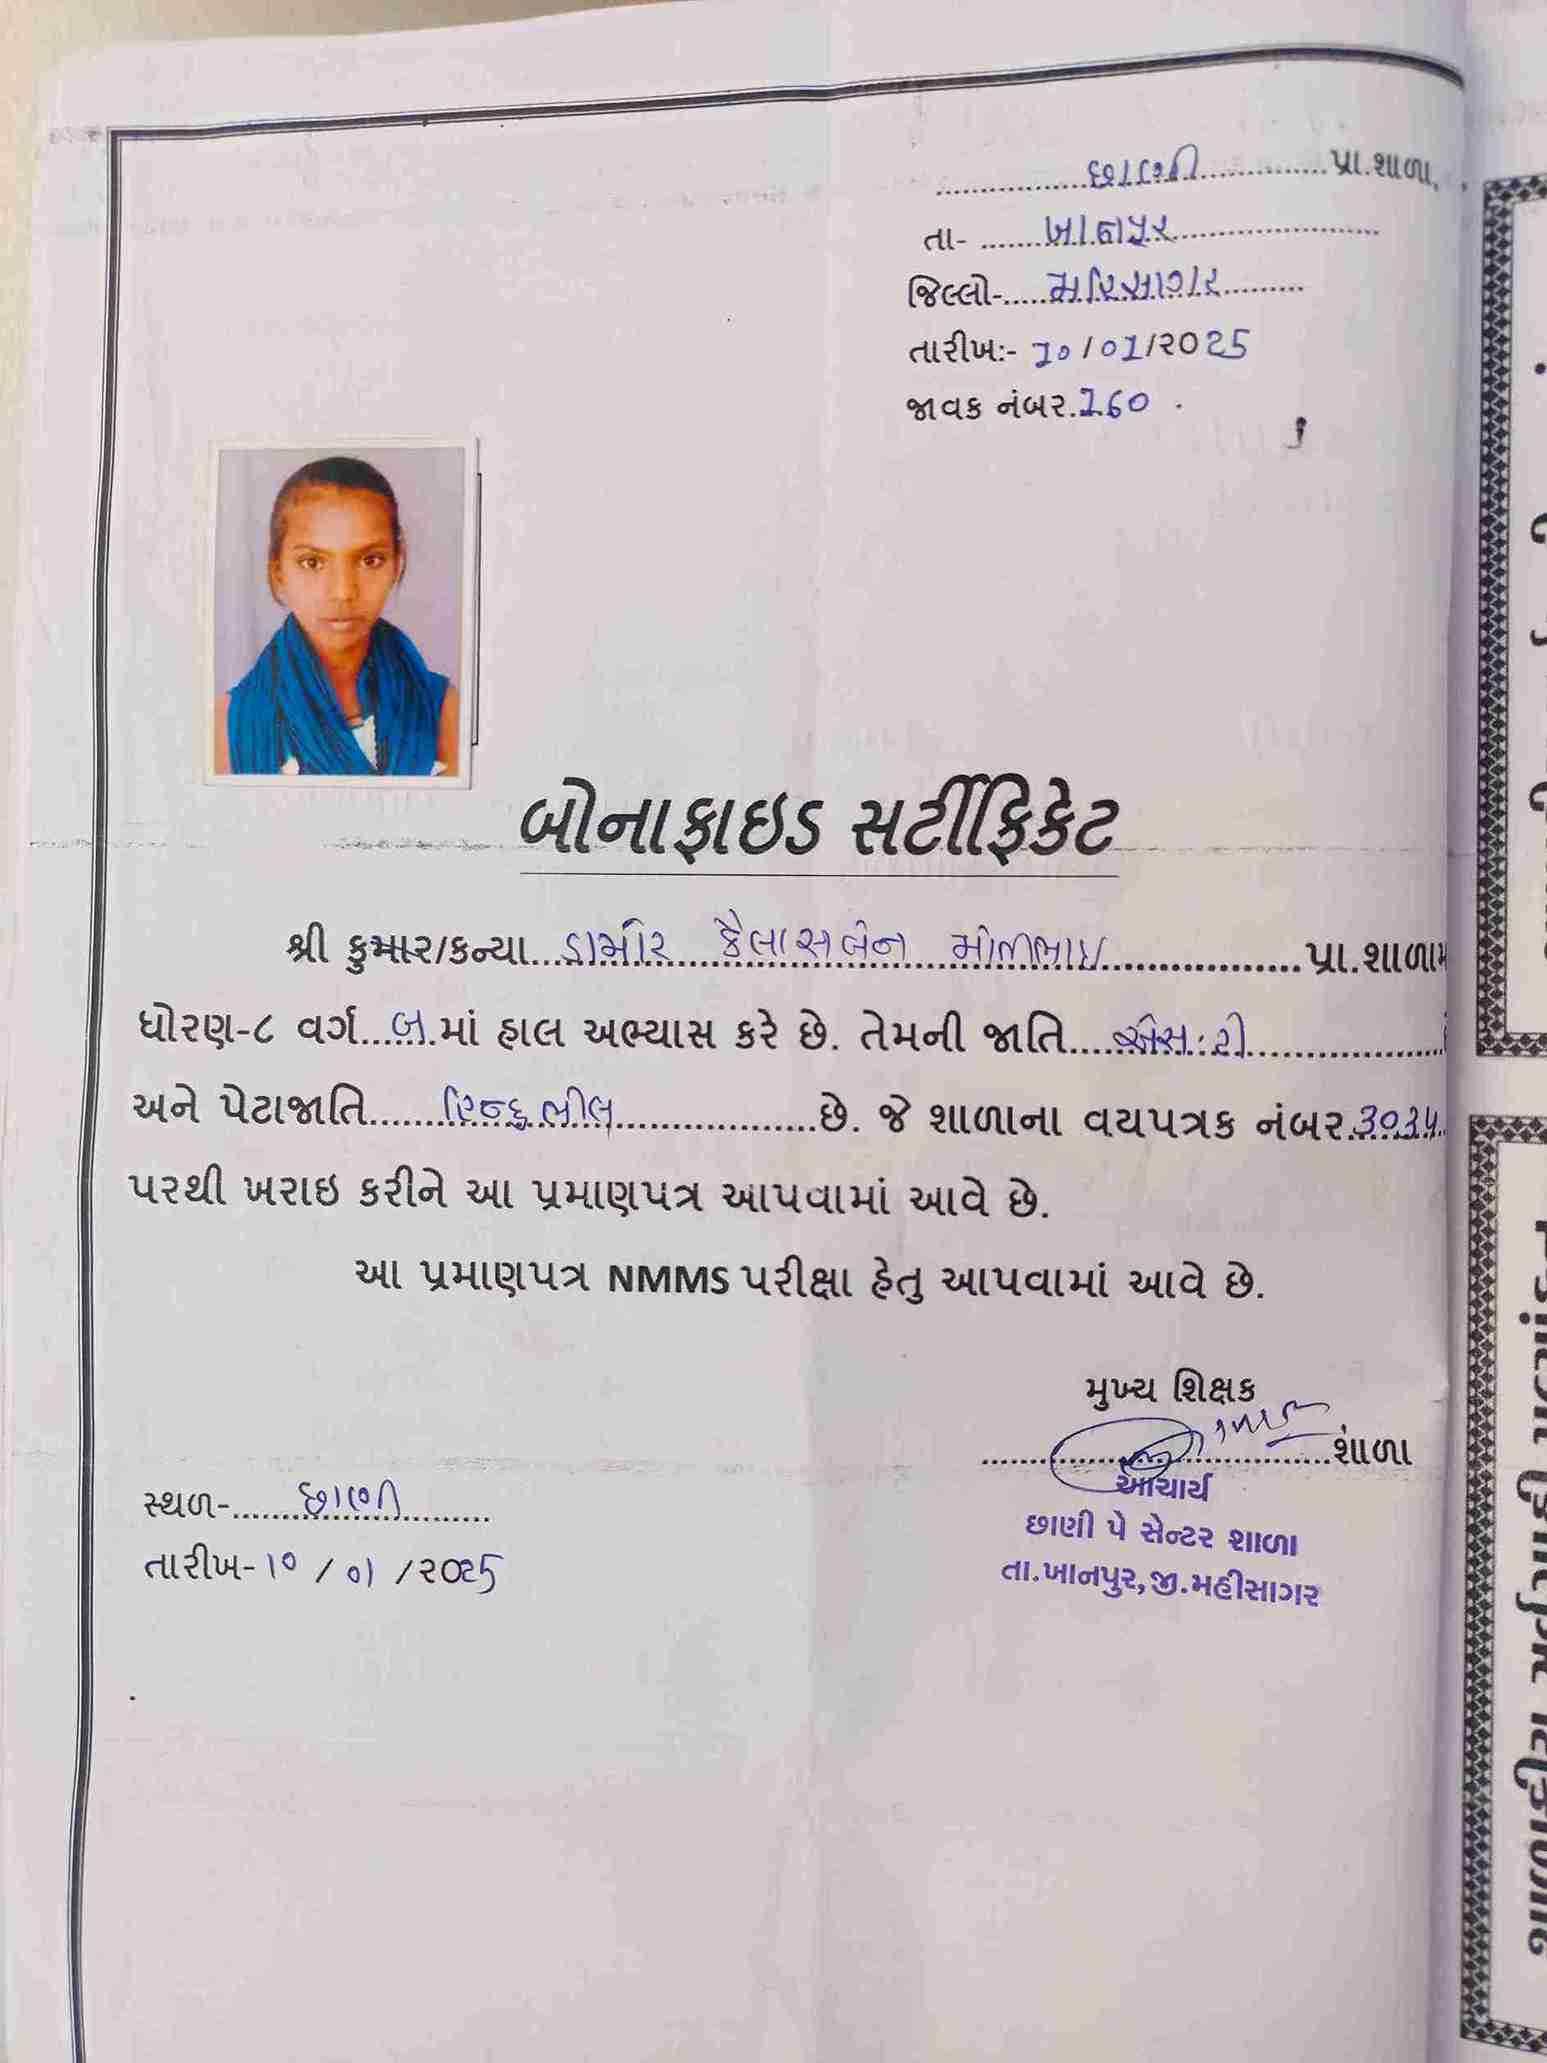 છાણી પ્રા.શાળા,
તા- ખાનપુર
જિલ્લો- મહિસાગર
તારીખ:- 10/01/૨૦25
જાવક નંબર.160
બોનાફાઇડ સર્ટીફિકેટ
શ્રી કુમાર/કન્યા ડામોર કૈલાસબેન પ્રા.શાળામ
ધોરણ-૮ વર્ગ બ માં હાલ અભ્યાસ કરે છે. તેમની જાતિ એસ.ટી
અને પેટાજાતિ હિન્દુ ભીલ છે. જે શાળાના વયપત્રક નંબર
પરથી ખરાઇ કરીને આ પ્રમાણપત્ર આપવામાં આવે છે.
આ પ્રમાણપત્ર NMMS પરીક્ષા હેતુ આપવામાં આવે છે.
મુખ્ય શિક્ષક
શાળા
આચાર્ય
છાણી પે સેન્ટર શાળા
તા.ખાનપુર,જી.મહીસાગર
સ્થળ- છાણી
તારીખ-૧૦/૦૧/૨૦25